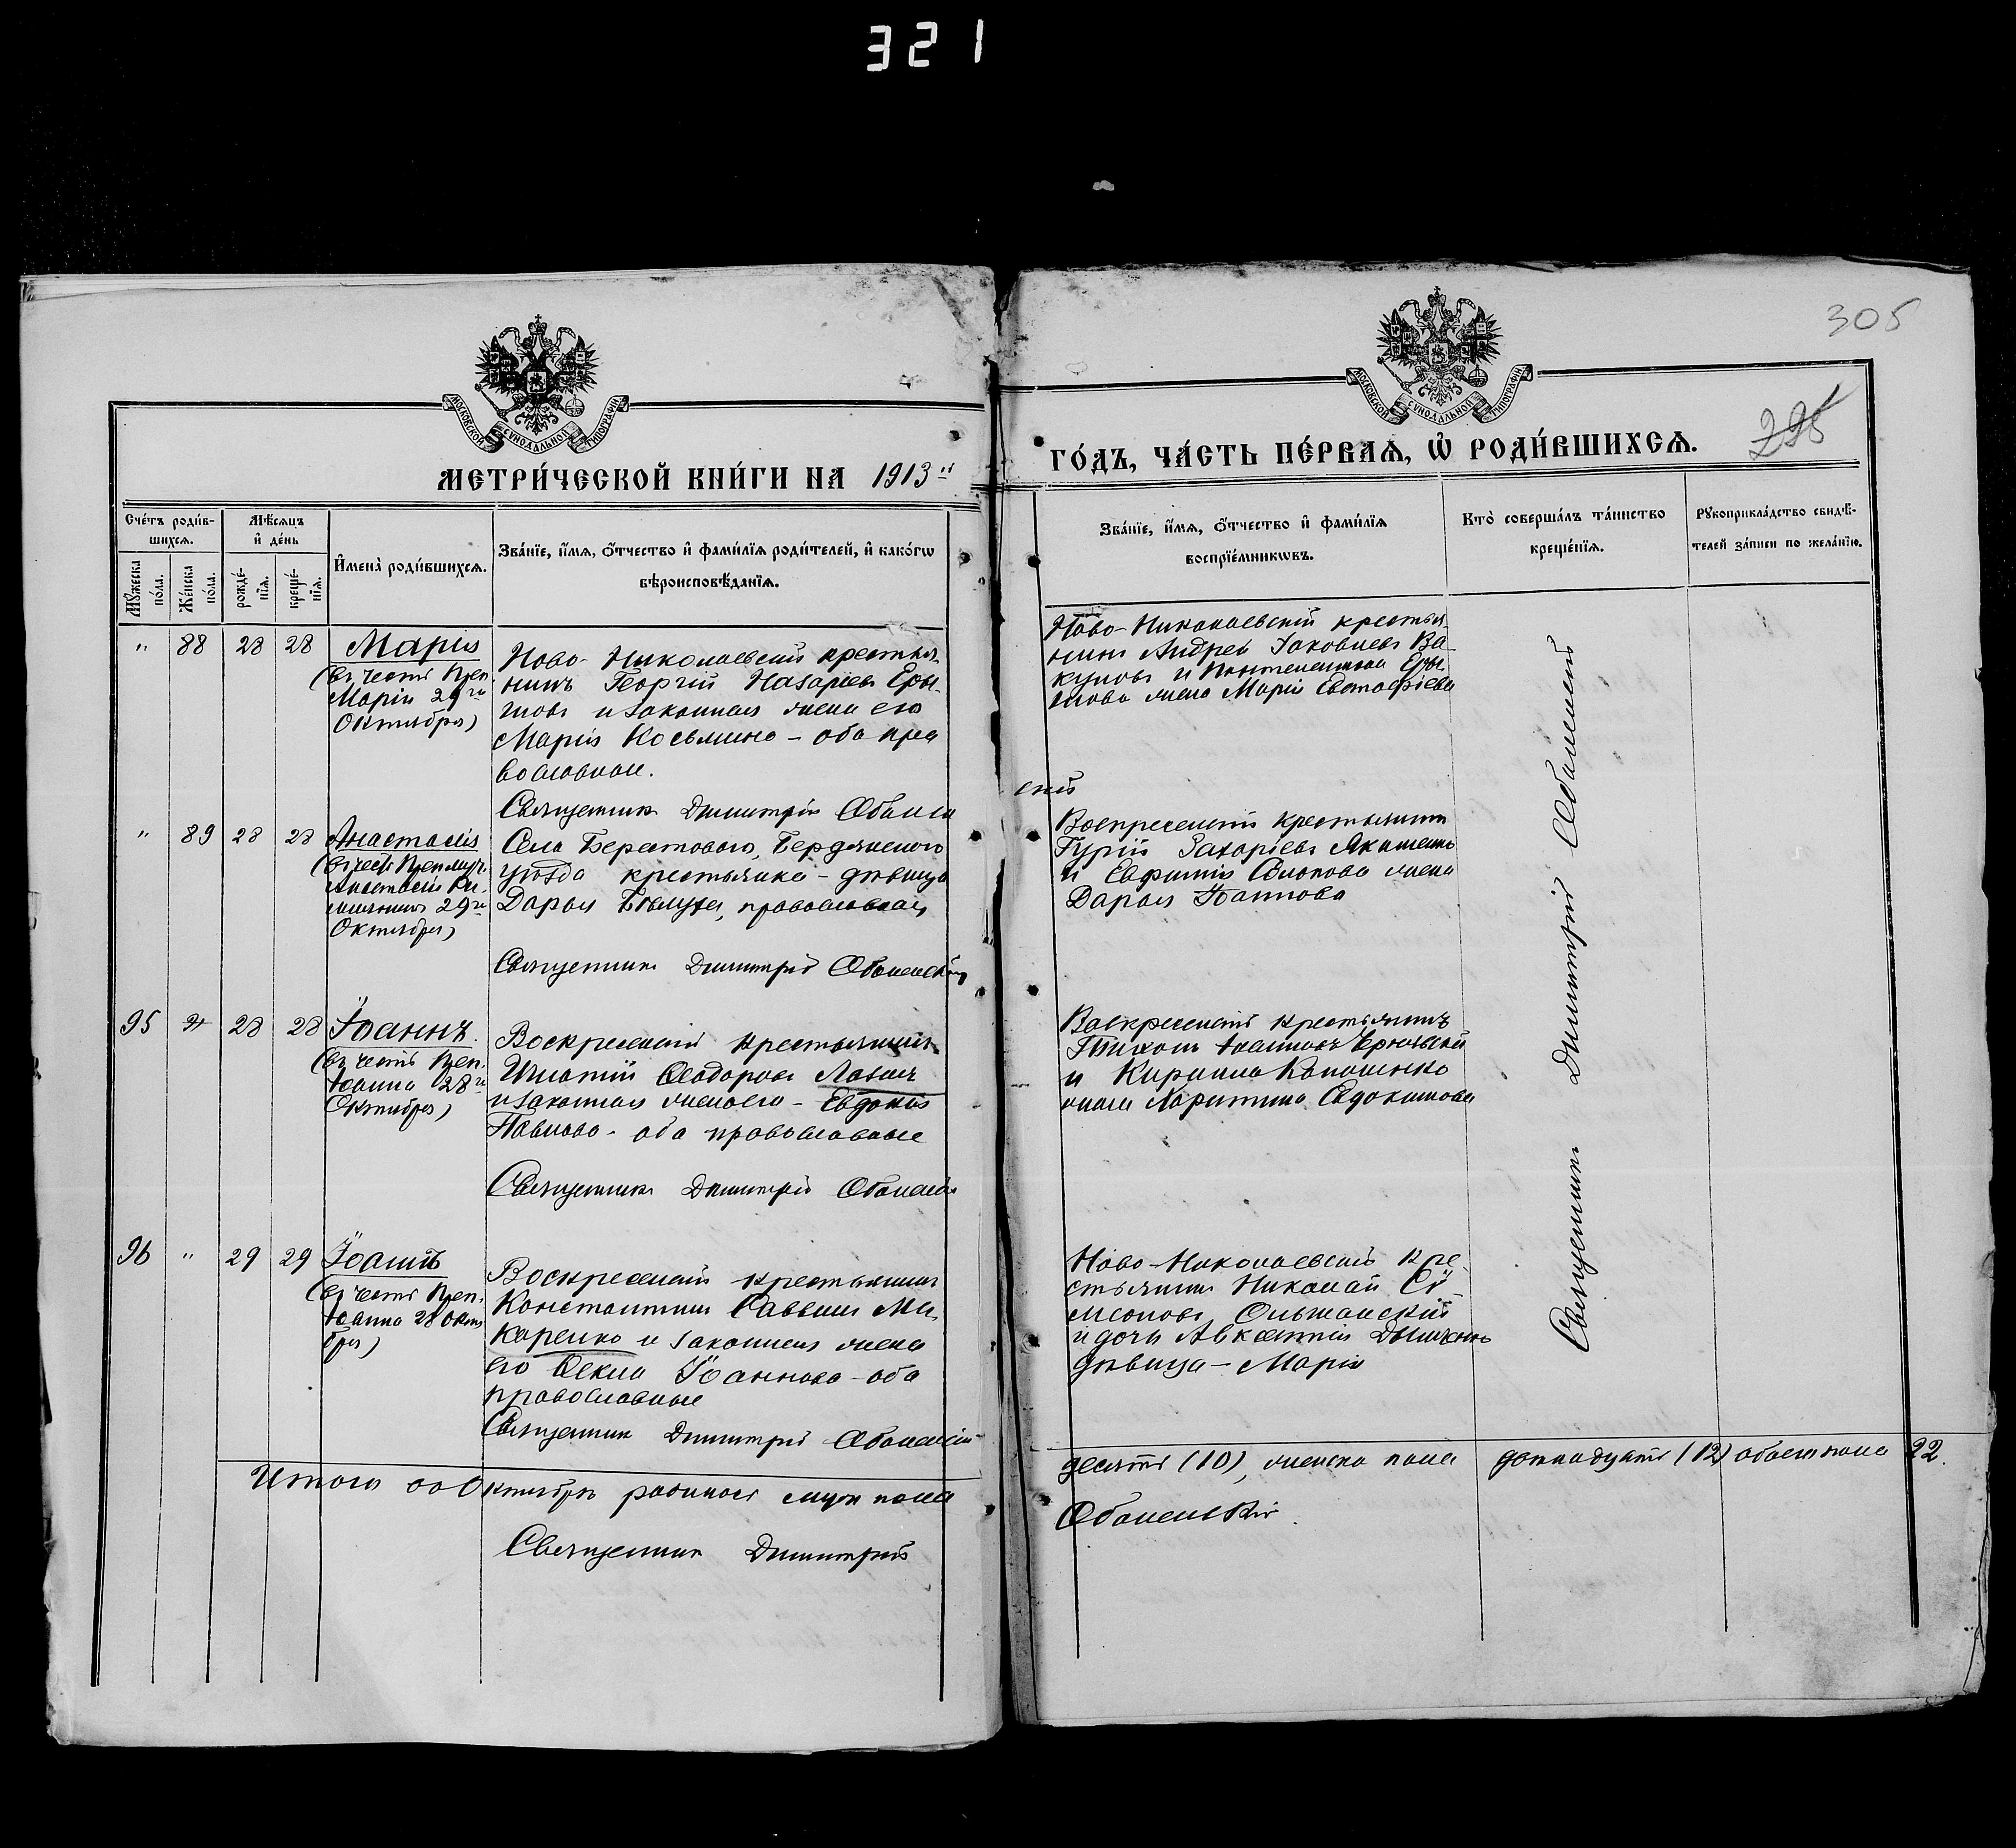 321
305
МОСКОВСКОЙ СѴНОДАЛЬНОЙ ТИПОГРАФІИ
МОСКОВСКОЙ СѴНОДАЛЬНОЙ ТИПОГРАФІИ
МЕТРИ́ЧЕСКОЙ КНИ́ГИ НА 1913
ГО́ДЪ, ЧА́СТЬ ПЕ́РВАѦ, Ѡ РОДИ́ВШИХСѦ.
Сче́тъ роди́в-
шихсѧ.
Мꙋ́жеска
по́ла.
Же́нска
по́ла.
Мѣ́сѧцъ
и҆ де́нь
рожде́-
нїѧ.
креще́-
нїѧ.
И҆мена̀ роди́вшихсѧ.
Зва́нїе, и҆́мѧ, ѻ҆́тчество и҆ фами́лїѧ роди́телей, и҆ како́гѡ
вѣроисповѣ́данїѧ.
Зва́нїе, и҆́мѧ, ѻ҆́тчество и҆ фами́лїѧ
воспрїе́мникѡвъ.
Кто̀ соверша́лъ та́инство
креще́нїѧ.
Рꙋкоприкла́дство свидѣ́-
телей за́писи по жела́нїю.
" 88 28 28 Марія
(въ честь Преп.
Маріи 29го
Октября)
Ново-Николаевскій крестья-
нинъ Георгій Назаріевъ
и законная жена его
Марія Косьмина - оба пра
вославные.
Священникъ Димитрій Оболен
скій
Ново-Николаевскій крестья-
нинъ Андрей Іаковлевъ Ва-
куловъ и Пантелеимона
жена Марія Евстафіева
" 89 28 28 Анастасія
29го
Октября)
Села Берестового, Бердянского
уѣзда крестьянка - дѣвица
Дарья православная
Священникъ Димитрій Оболенскій
Воскресенскій крестьянинъ
Гурій Захаріевъ
и Евфимія жена
Дарья
95 " 28 28 Іоаннъ
(въ честь Преп.
Іоанна 28го
Октября)
Воскресенскій крестьянинъ
Игнатій Ѳеодоровъ
и законная жена его - Евдокія
Павлова - оба православные
Священникъ Димитрій Оболенскій
Воскресенскій крестьянинъ
Тихонъ Іоанновъ
и Кирилла
жена Харитина Евдокимова
96 " 29 29 Іоаннъ
(въ честь Преп.
Іоанна 28 Октя
бря)
Воскресенскій крестьянинъ
Константинъ Саввинъ Ма-
каренко и законная жена
его Ѳекла Іоаннова - оба
православные
Священникъ Димитрій Оболенскій
Ново-Николаевскій кре-
стьянинъ Николай Сѵ-
меоновъ Ольшанскій
и дочь Авксентія
дѣвица - Марія
Священникъ Димитрій Оболенскій
Итого въ Октябрѣ родилось муж. пола
десять (10), женска пола двѣнадцать (12) обоего пола 22.
Священникъ Димитрій
Оболенскій.